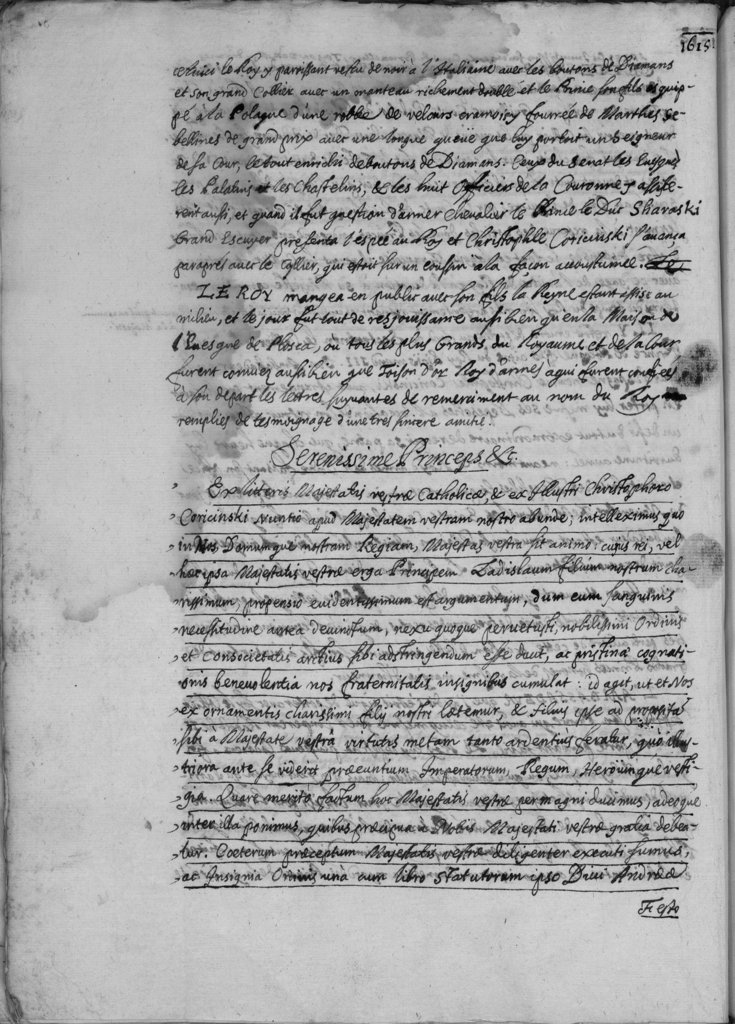 1615
le Roy y parroissant vestu de noir à l'Italiaine avec les boutons de Diamans
et son grand Collier avec un manteau richement double et le Prince son fils equip-
pé à la Polaque d'une robbe de velours cramoisy fourrée de Marthes Se-
bellines de grand prix avec une longue queue que luy portoit un Seigneur
de sa Cour, le tout enrichi de boutons de Diamans. Ceux du Senat les Euesques
les Palatins et les Chastelins, & les huit Officiers de la Couronne y assiste-
rent aussi, et quand il fut question d'armer Chevalier le Prince le Duc Sbaraski
Grand Escuyer presenta l'espée au Roy et Christophle Coricinski s'avança
par apres avec le Collier, qui estoit sur un coussin à la façon accoustumée.
LE ROY mangea en public avec son fils la Reyne estant assise au
milieu, et le jour fut tout de resjouissance aussi bien qu'en la Maison de
l'Euesque de Plosca, où tous les plus Grands du Royaume et de la Cour
furent conviez aussi bien que Toison d'or Roy d'armes à qui furent confiées
à son depart les lettres suyvantes de remerciment au nom du Roy
remplies de tesmoignage d'une tres sincere amitié.
Serenissime Princeps &c.
Ex litteris Majestatis vestræ Catholicæ, & ex Illustri Christophoro
Coricinski nuntio apud Majestatem vestram nostro abunde, intelleximus quo
in Nos Domumque nostram Regiam, Majestas vestra sit animo: cujus rei, vel
hæc ipsa Majestatis vestræ erga Principem Ladislaum filium nostrum cha-
rissimum, propensio evidentissimum est argumentum, dum eum sanguinis
necessitudine antea devinctum, nexu quoque pervetusti, nobilissimi Ordinis
et Consocietatis arctius sibi adstringendum esse duxit, ac pristinæ cognati-
onis benevolentia nos fraternitatis insignibus cumulat: id agit, ut et Nos
ex ornamentis charissimi filij nostri lætemur, & filius ipse ad propositam
sibi à Majestate vestra virtutis metam tanto ardentius feratur, quo illus-
triora ante se viderit præeuntium Imperatorum, Regum, Heroumque vesti-
gia. Quare merito factum hoc Majestatis vestræ permagni ducimus, adeoque
inter illa ponimus, quibus præcipua à Nobis Majestati vestræ gratia debe-
tur. Cæterum præceptum Majestatis vestræ diligenter executi sumus,
ac Insignia Ordinis unà cum libro Statutorum ipso Divi Andreæ
Festo